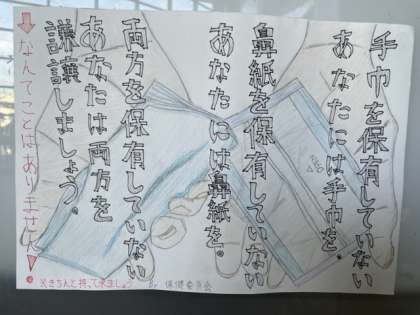 手巾を保有していない
あなたには手巾を。
鼻紙を保有していない
あなたには鼻紙を。
両方を保有していない
あなたは両方を
謙譲しましょう。
なんてことはありません!
※きちんと持って来ましょう
by 保健委員会